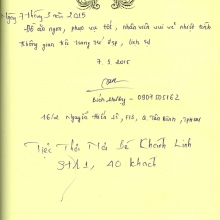 Ngày 7 tháng 1 năm 2015
Đồ ăn ngon, phục vụ tốt, nhân viên vui vẻ nhiệt tình
Không gian trang trí đẹp, lịch sự
7.1.2015
0907505162
16/2 Nguyễn Thiện, F15, Q Tân Bình, TpHCM
Tiệc Thôi Nôi bé Khánh Linh
31/1, 40 khách